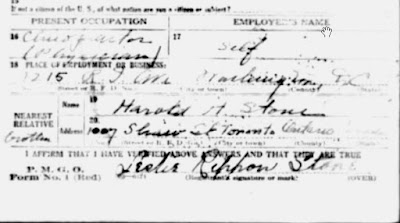 If not a citizen of the U. S., of what nation are you a citizen or subject?
PRESENT OCCUPATION EMPLOYER'S NAME
16 Chiropractor 17
(Physician) Self
18 PLACE OF EMPLOYMENT OR BUSINESS:
1215 Washington, D C
(Street or R. F. D. No.) (City or town) (County) (State)
NEAREST RELATIVE
Name 19 Harold A. Stone
Brother
Address 20 1007 Shaw St Toronto Ontario
(Street or R. F. D. No.) (City or town) (County)
I AFFIRM THAT I HAVE VERIFIED ABOVE ANSWERS AND THAT THEY ARE TRUE
P. M. G. O.
Form No. 1 (Red) Leslie Rippon Stone
(Registrant's signature or mark) (OVER)